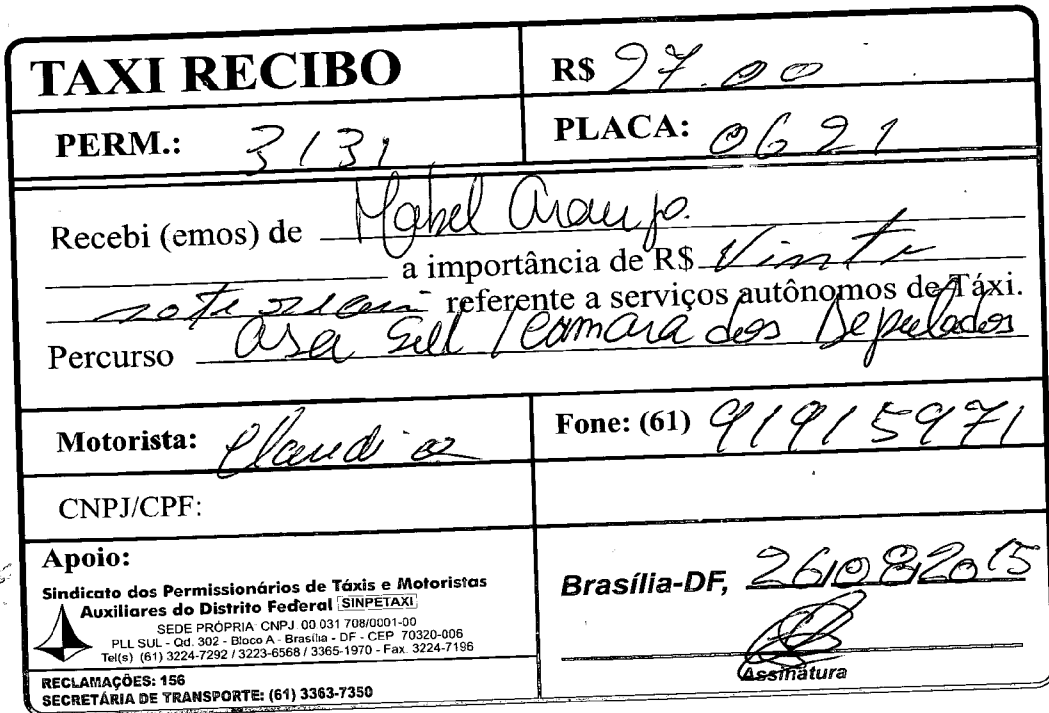 TAXI RECIBO
R$ 27.00
PERM.: 3131
PLACA: 0621
Recebi (emos) de Mabel Araujo.
a importância de R$ Vinte
sete reais referente a serviços autônomos de Táxi.
Percurso Asa Sul / Camara dos Deputados
Motorista:
Fone: (61) 91915971
CNPJ/CPF:
Apoio:
Sindicato dos Permissionários de Táxis e Motoristas
Auxiliares do Distrito Federal SINPETAXI
SEDE PRÓPRIA CNPJ 00 031 708/0001-00
PLL SUL - Qd. 302 - Bloco A - Brasília - DF - CEP 70320-006
Tel(s) (61) 3224-7292 / 3223-6568 / 3365-1970 - Fax. 3224-7196
RECLAMAÇÕES: 156
SECRETÁRIA DE TRANSPORTE: (61) 3363-7350
Brasília-DF, 26/08/2015
Assinatura